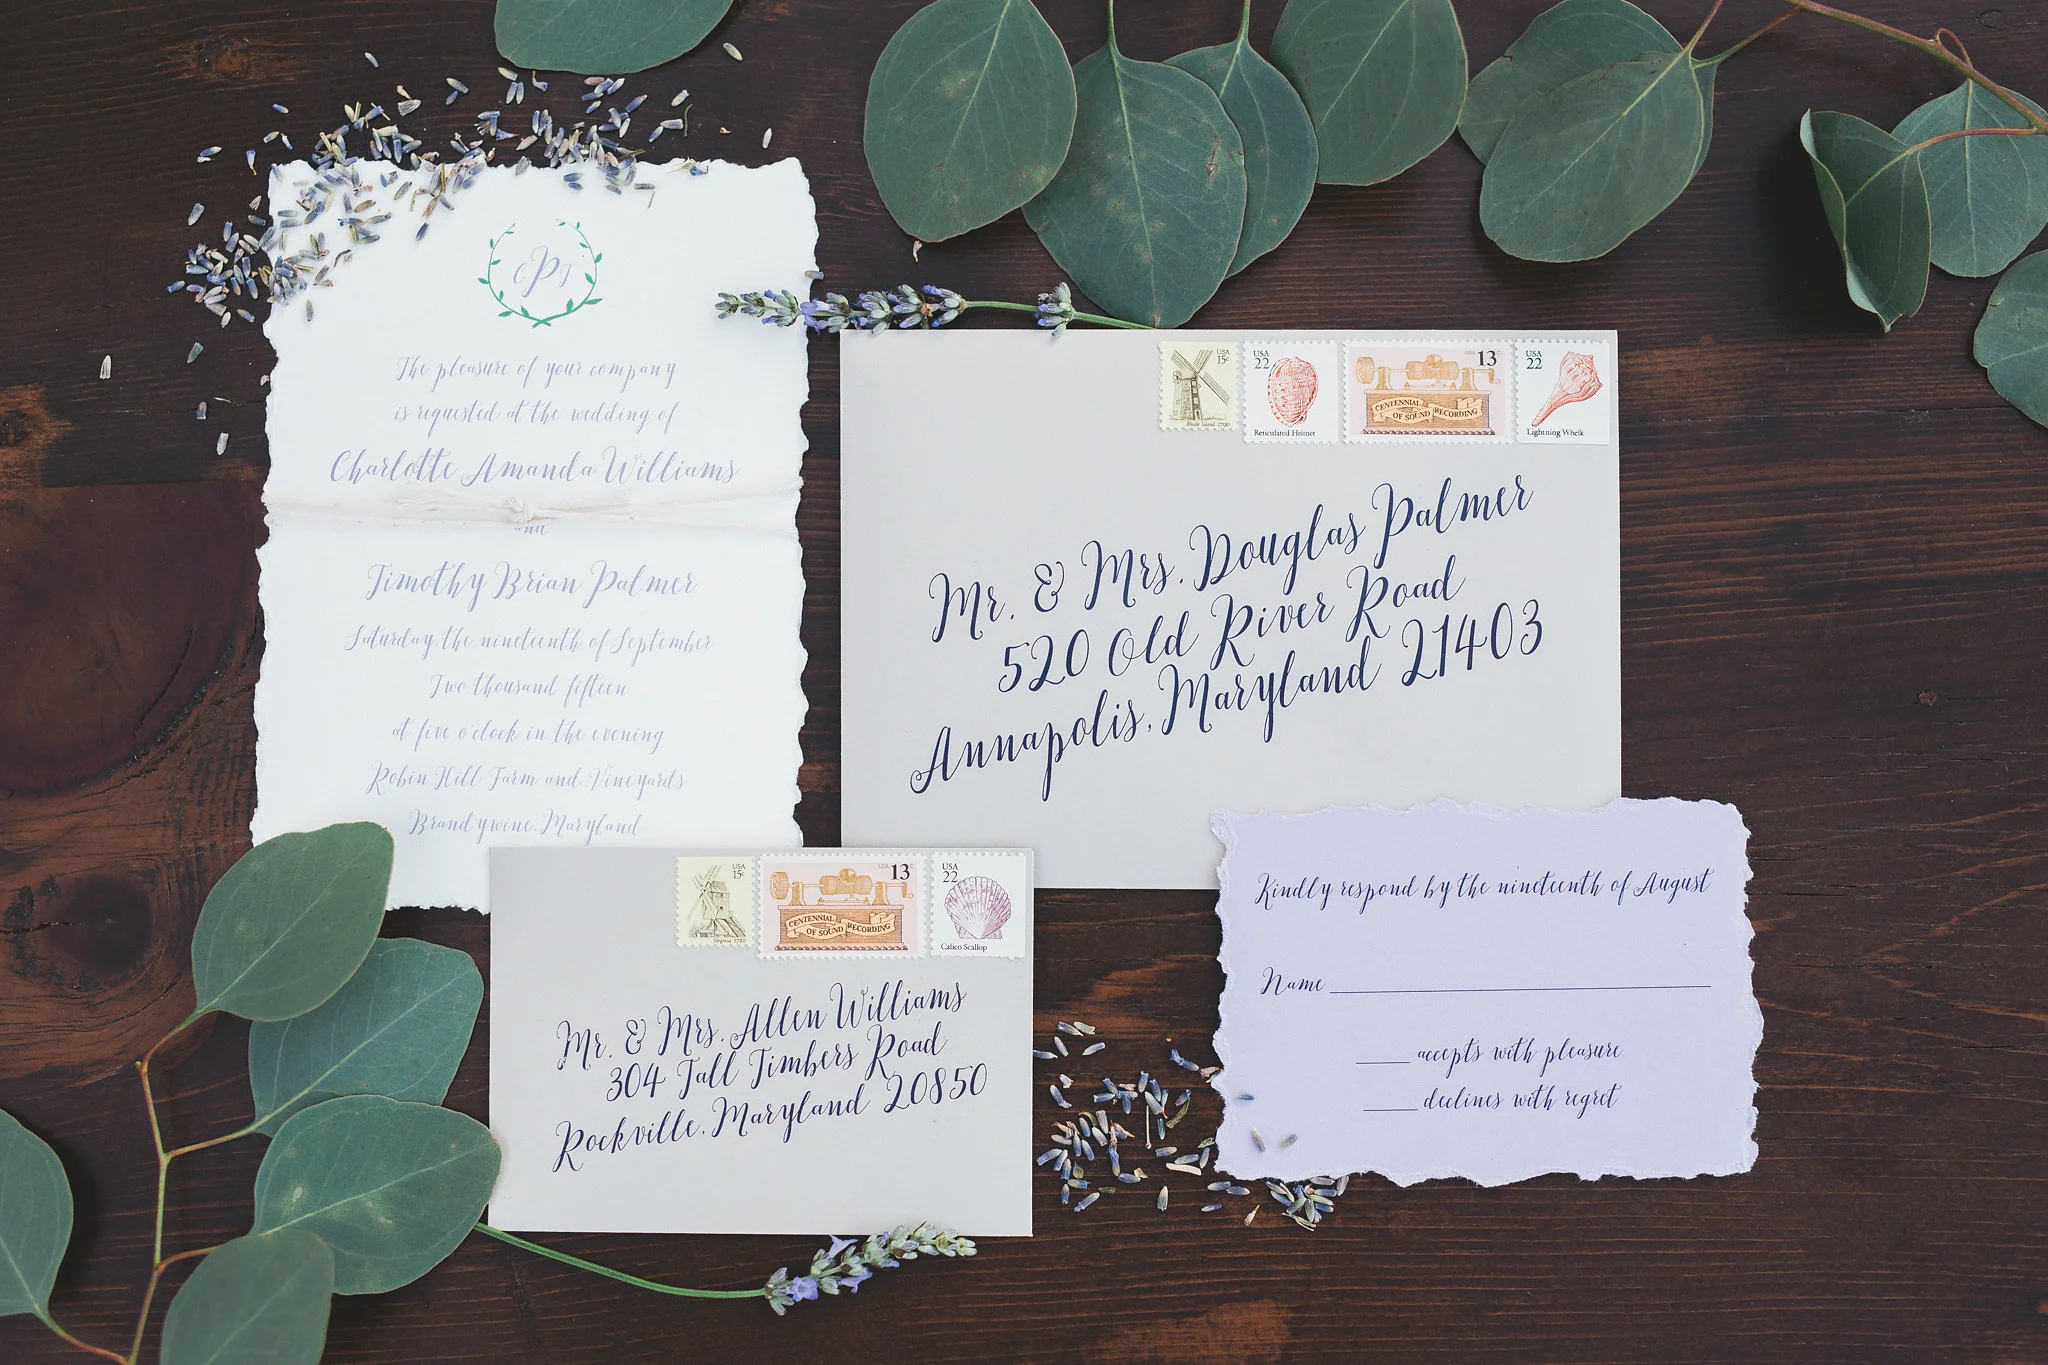 C P T
The pleasure of your company
is requested at the wedding of
Charlotte Amanda Williams
Timothy Brian Palmer
Saturday, the nineteenth of September
Two thousand fifteen
at five o'clock in the evening
Robin Hill Farm and Vineyards
Brandywine, Maryland
USA
15c
Rhode Island 1790
USA
22
Reticulated Helmet
USA 13c
CENTENNIAL
OF SOUND RECORDING
USA
22
Lightning Whelk
Mr. & Mrs. Douglas Palmer
520 Old River Road
Annapolis, Maryland 21403
USA
15c
Virginia 1720
USA 13c
CENTENNIAL
OF SOUND RECORDING
USA
22
Calico Scallop
Mr. & Mrs. Allen Williams
304 Tall Timbers Road
Rockville, Maryland 20850
Kindly respond by the nineteenth of August
Name
accepts with pleasure
declines with regret